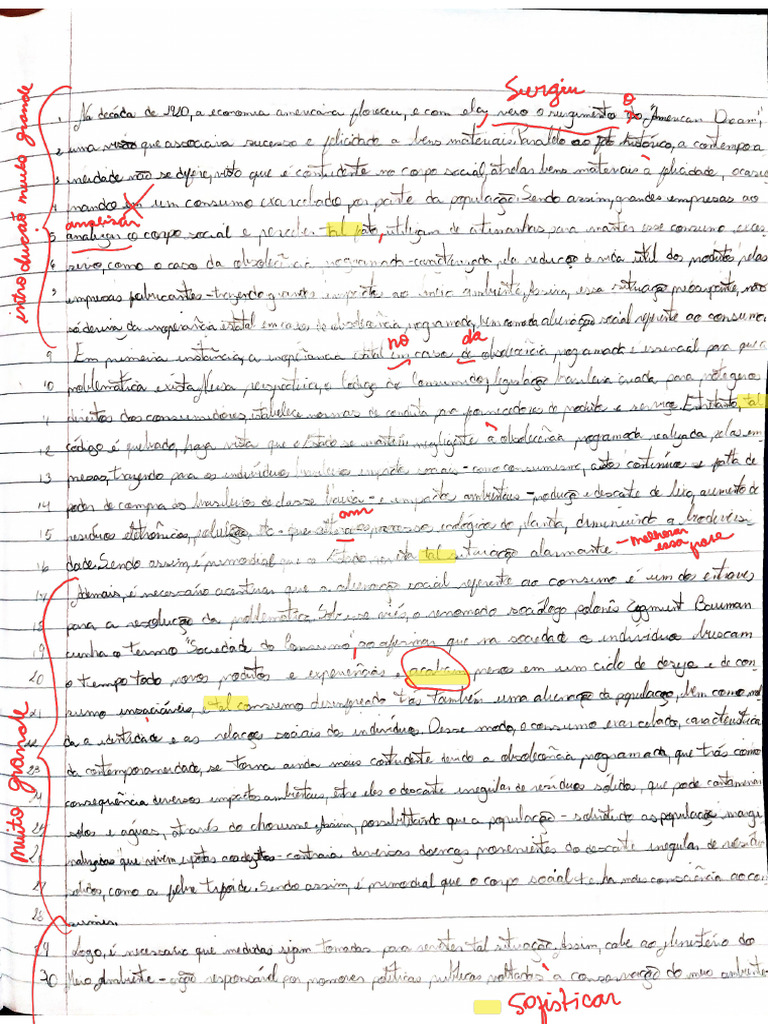 Surgiu
1 Na década de 1920, a economia americana floresceu, e com ela, veio o surgimento do "American Dream",
o
2 uma visão que associava sucesso e felicidade a bens materiais. Paralelo ao histórico, a contempora
3 neidade não se difere, visto que é contundente no corpo social, atrelar bens materiais à felicidade, ocasio
4 nando em um consumo exarcebado, por parte da população. Sendo assim, grandes empresas ao
analisar
5 analizar o corpo social e perceber tal fato, utilizam de artimanhas para manter esse consumo exces
6 sivo, como o caso da obsolecência programada - caracterizada, pela redução de vida útil dos produtos pelas
7 empresas fabricantes - trazendo grandes impactos ao meio ambiente. Assim, essa situação preocupante, não
só deriva da inoperância estatal em casos de obsolecência programada, bem como da alienação social referente ao consumo.
no da
9 Em primeira instância, a inoperância estatal em caso de obsolecência programada é essencial para que a
10 problemática exista. Nessa perspectiva, o Código do Consumidor, legislação brasileira criada para proteger os
11 direitos dos consumidores, estabelece normas de conduta para fornecedores de produto e serviço. Entretanto, tal
12 código é quebrado, haja vista que o Estado se mantém negligente à obsolecência programada realizada pelas em
13 presas, trazendo para os indivíduos brasileiros impactos sociais - como consumismo, e a falta de
14 poder de compra dos brasileiros de classe baixa - e impactos ambientais - produção e descarte de lixo, aumento de
am
15 resíduos eletrônicos, poluição - que altera os processos ecológicos do planeta, diminuindo a biodiversi
16 dade. Sendo assim, é primordial que o Estado reverta tal situação alarmante. - melhorar
essa frase
17 Ademais, é necessário acentuar que a alienação social referente ao consumo é um dos entraves
18 para a resolução da problemática. Sob esse viés, o renomado sociólogo polonês Zygmunt Bauman
19 cunha o termo "Sociedade do Consumo", ao afirmar que na sociedade o indivíduos buscam
20 o tempo todo, novos produtos e experiências e acabam presos em um ciclo de desejo e de con
21 sumo insaciáveis, e tal consumo desenfreado trás também uma alienação da população, bem como mol
22 da a identidade e as relações sociais dos indivíduos. Desse modo, o consumo exarcelado, característica
23 da contemporaneidade, se torna ainda mais contundente devido a obsolecência programada, que trás como
24 consequência diversos impactos ambientais, entre eles o descarte irregular de resíduos sólidos, que pode contaminar
25 solos e águas, através do chorume. Assim, possibilitando que a população - sobretudo as populações margi
2 nalizadas que vivem - contraia diversas doenças provenientes do descarte irregular de resíduos
27 sólidos, como a febre tifoide. Sendo assim, é primordial que o corpo social tenha mais consciência ao con
28 sumir.
29 Logo, é necessário que medidas sejam tomadas para reverter tal situação. Assim, cabe ao Ministério do
30 Meio Ambiente - órgão responsável por promover políticas públicas voltadas à conservação do meio ambiente
introdução muito grande
Muito grande
Sofisticar